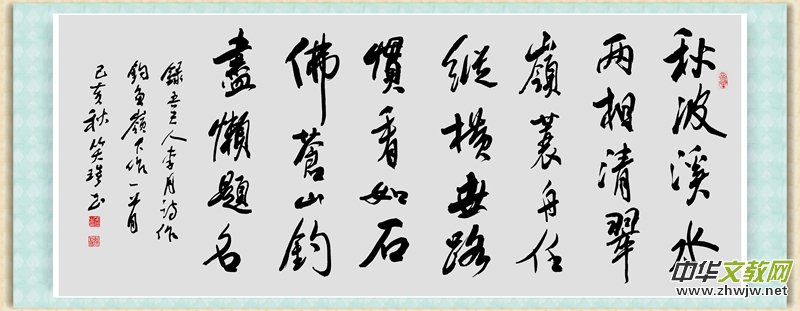 秋波溪水
两相清翠
嶺蓑舟任
縱横無路
慣看如石
佛蒼山钓
盡懒題名
錄吾人李月诗作
钓鱼嶺下作一首
己亥秋笑书
中华文教网
www.zhwjw.net